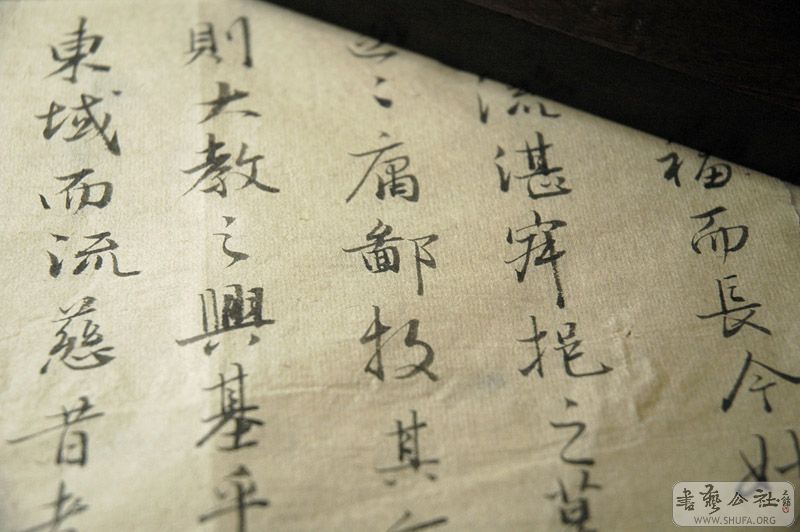 福而長今妙
流湛寂挹之莫
々庸鄙投其
則大教之興基乎
東域而流慈昔者
書藝公社
WWW.SHUFA.ORG